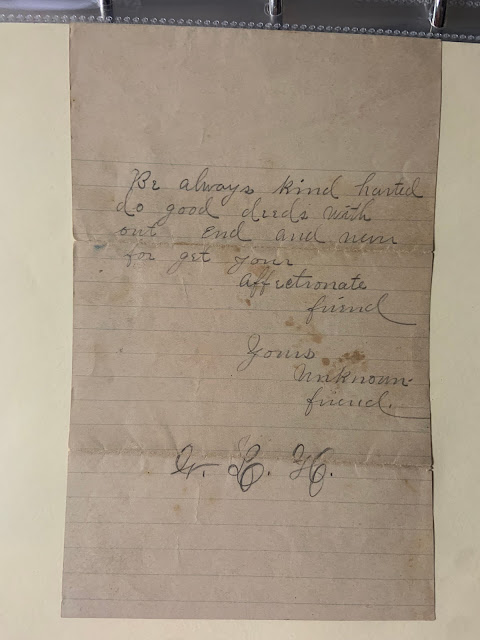 Be always kind harted
do good deeds with
out End and never
for get your
Affectionate
friend
Yours
Unknown
friend.
W. L. H.